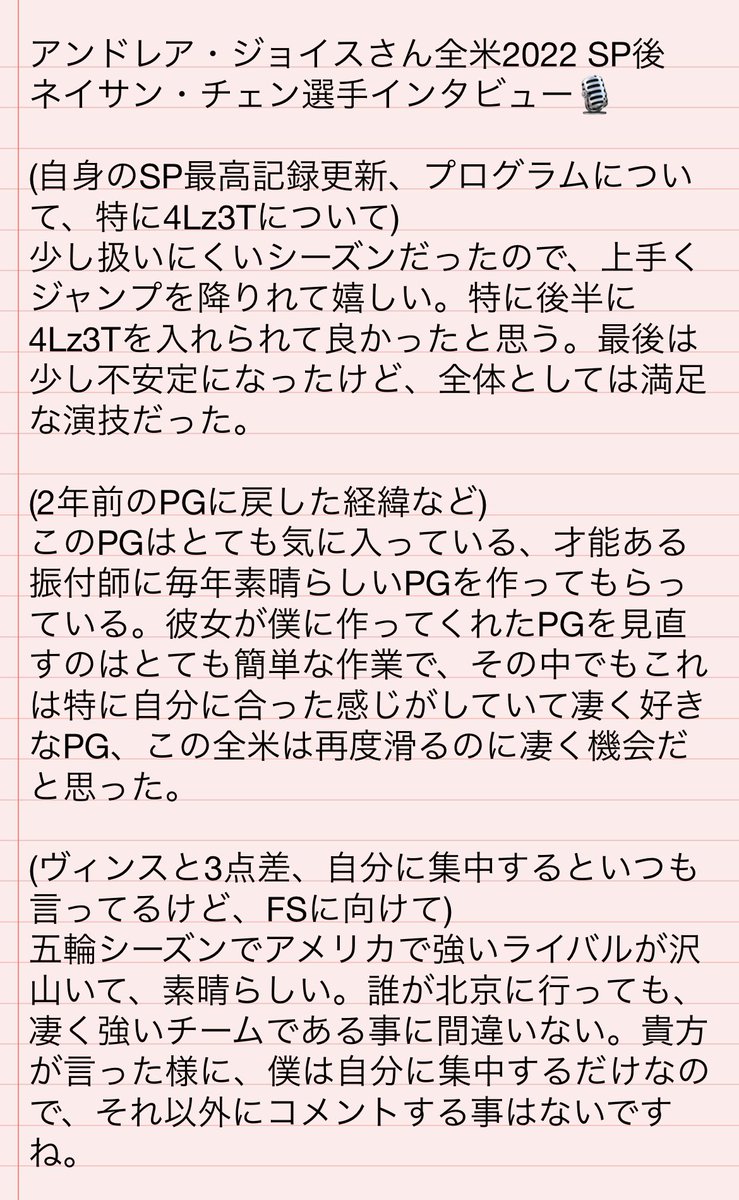 アンドレア・ジョイスさん全米2022 SP後
ネイサン・チェン選手インタビュー🎙
(自身のSP最高記録更新、プログラムについ
て、特に4Lz3Tについて)
少し扱いにくいシーズンだったので、上手く
ジャンプを降りれて嬉しい。特に後半に
4Lz3Tを入れられて良かったと思う。最後は
少し不安定になったけど、全体としては満足
な演技だった。
(2年前のPGに戻した経緯など)
このPGはとても気に入っている、才能ある
振付師に毎年素晴らしいPGを作ってもらっ
ている。彼女が僕に作ってくれたPGを見直
すのはとても簡単な作業で、その中でもこれ
は特に自分に合った感じがしていて凄く好き
なPG、この全米は再度滑るのに凄く機会だ
と思った。
(ヴィンスと3点差、自分に集中するといつも
言ってるけど、FSに向けて)
五輪シーズンでアメリカで強いライバルが沢
山いて、素晴らしい。誰が北京に行っても、
凄く強いチームである事に間違いない。貴方
が言った様に、僕は自分に集中するだけなの
で、それ以外にコメントする事はないです
ね。